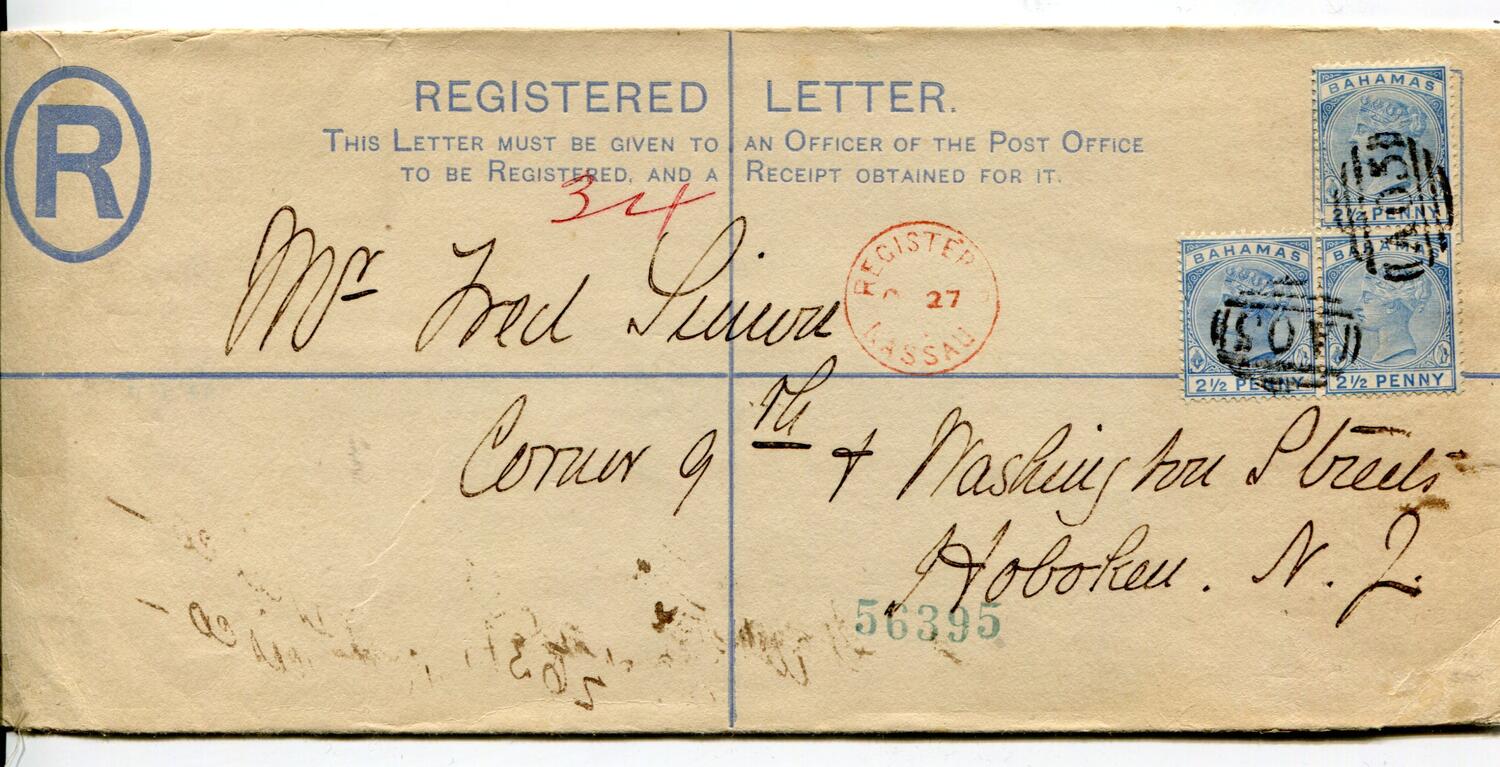 R
REGISTERED LETTER.
THIS LETTER MUST BE GIVEN TO AN OFFICER OF THE POST OFFICE
TO BE REGISTERED, AND A RECEIPT OBTAINED FOR IT.
34
BAHAMAS
2½ PENNY
A05
BAHAMAS
2½ PENNY
BAHAMAS
2½ PENNY
A05
REGISTERED
27
NASSAU
Mr Fred Simon
Corner 9th + Washington Streets
Hoboken. N. J.
56395